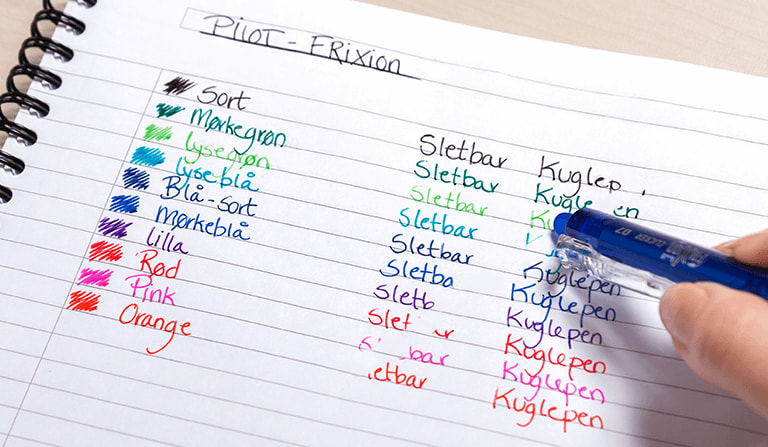 PILOT - FRIXION
Sort Sletbar Kuglep
Mørkegrøn Sletbar Kugle en
Lysegrøn Sletbar Ku
Lyseblå Sletbar
Blå-Sort Sletbar Kuglepen
Mørkeblå Sletba Kuglepen
Lilla Sletb Kuglepen
Rød Slet r Kuglepen
Pink S bar Kuglepen
Orange etbar Kuglepen
CLICKER 07